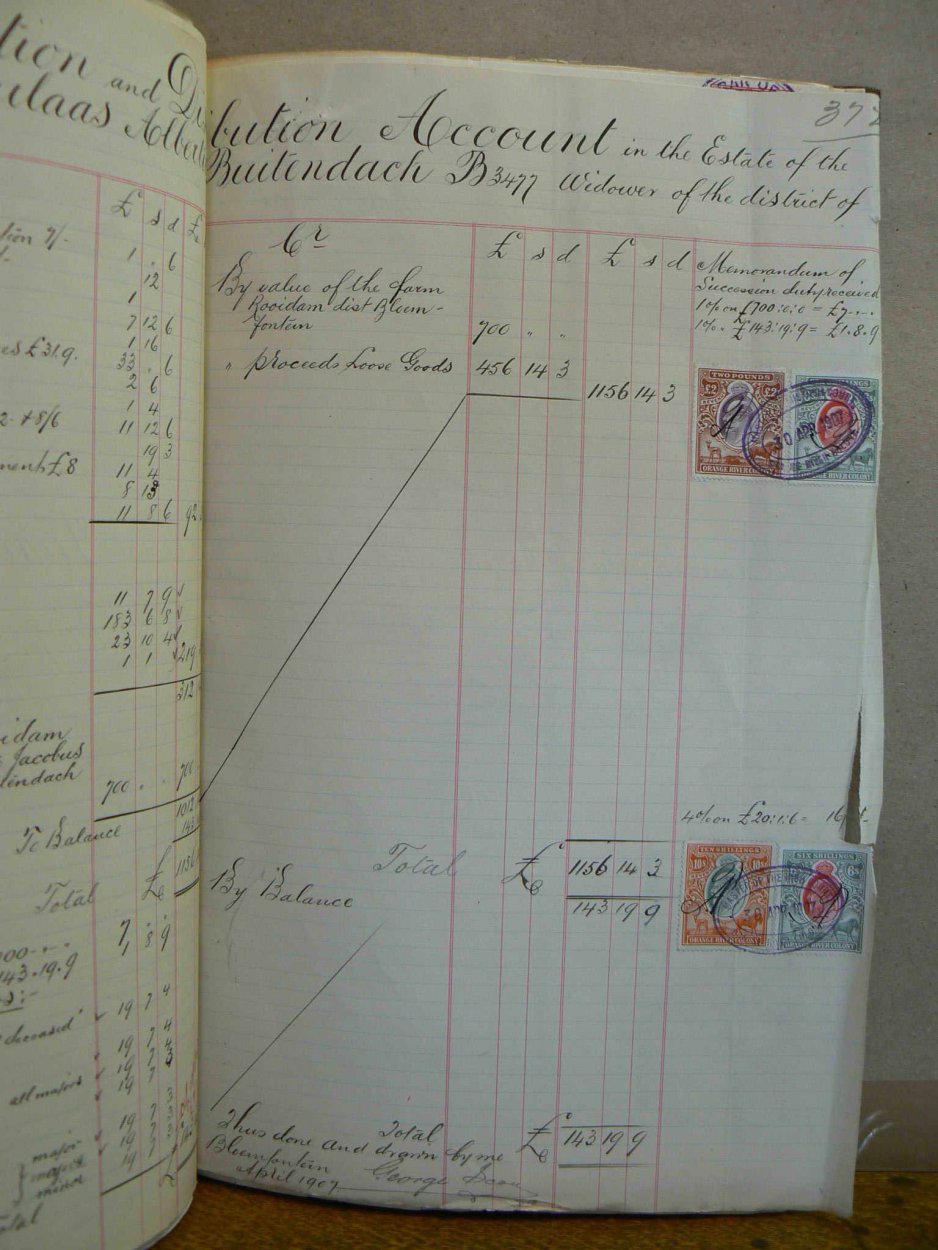 tion and Di
ulaas Albert
£ s d £
tion 7/-
1 . 6
12
1
7 12 6
1 16
es £31.9.
33 . 6
2 6
1 4
2. + 8/6
11 12 6
19 3
ment £8
11 4
8 13
11 8 6 92
11 7 9
183 6 8
23 10 4
1 1 219
312
idam
Jacobus
tendach
700 . . 700
1012
To Balance 143
£ 1156
Total
7
1 8 9
143.19.9
deceased
19 7 4
19 7 4
19 7 3
all majors 19 7
19 7 3
major 19 7 3
major 19 7
minor
otal
372
bution Account in the Estate of the
Buitendach B3477 Widower of the district of
Cr £ s d £ s d
Memorandum of
Succession duty received
1% on £700:0:0 = £7.-.-
1% " £143:19:9 = £1.8.9
By value of the farm
Rooidam dist Bloem-
fontein 700 " "
" proceeds Loose Goods 456 14 3
1156 14 3
TWO POUNDS
£2 £2
ORANGE RIVER COLONY
SHILLINGS
ORANGE RIVER COLONY
30 APR 1907
4% on £20:1:6 = 16
Total £ 1156 14 3
By Balance 143 19 9
TEN SHILLINGS
10s 10s
ORANGE RIVER COLONY
SIX SHILLINGS
6s
ORANGE RIVER COLONY
30 APR 1907
Total £ 143 19 9
Thus done and drawn by me
Bloemfontein
April 1907 George